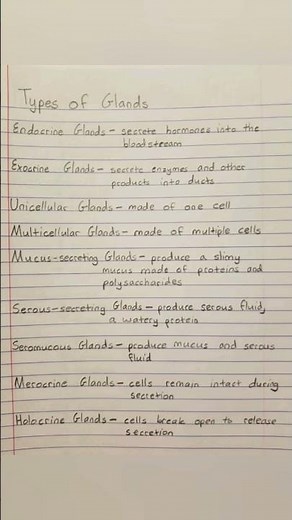 Types of Glands
Endocrine Glands - secrete hormones into the
bloodstream
Exocrine Glands - secrete enzymes and other
products into ducts
Unicellular Glands - made of one cell
Multicellular Glands - made of multiple cells
Mucus-secreting Glands - produce a slimy
mucus made of proteins and
polysaccharides
Serous-secreting Glands - produce serous fluid,
a watery protein
Seromucous Glands - produce mucus and serous
fluid
Merocrine Glands - cells remain intact during
secretion
Holocrine Glands - cells break open to release
secretion